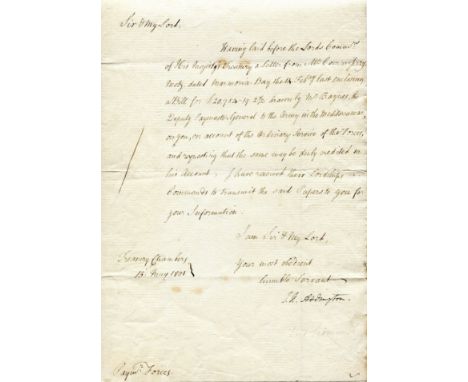 Sir & My Lord,
Having laid before the Lords Commrs.
of His Majesty's Treasury a Letter from Mr Com
dated Marmorice Bay the 14 Feby. last enclosing
a Bill for £20,724-19-2½ drawn by Mr Baynes, the
Deputy Paymaster General to the Army in the Mediterranean,
on you, on account of the Ordinary Service of the Forces,
and requesting that the same may be duly credited in
his Account, I have received their Lordships
Commands to transmit the said Papers to you for
your Information.
I am Sir & My Lord,
Your most obedient
humble Servant
Treasury Chambers
15 May 1801
J. H. Addington.
Paymr. Forces